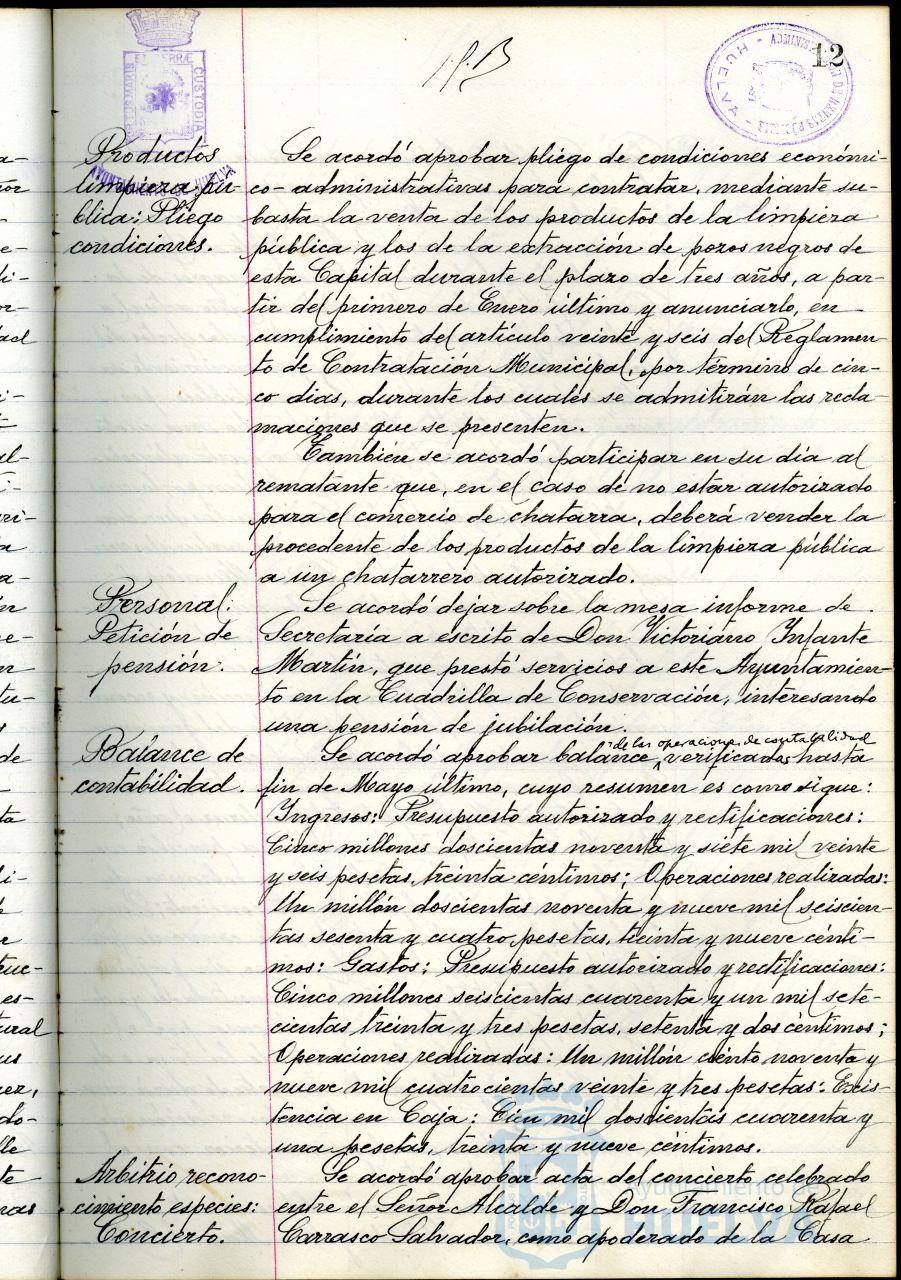 12
Productos
limpieza pú-
blica: Pliego
condiciones.
Se acordó aprobar pliego de condiciones económi-
co-administrativas para contratar, mediante su-
basta la venta de los productos de la limpieza
pública y los de la extracción de pozos negros de
esta Capital durante el plazo de tres años, a par-
tir del primero de Enero último y anunciarlo, en
cumplimiento del artículo veinte y seis del Reglamen-
to de Contratación Municipal, por término de cin-
co dias, durante los cuales se admitirán las recla-
maciones que se presenten.
Tambien se acordó participar en su dia al
rematante que, en el caso de no estar autorizado
para el comercio de chatarra, deberá vender la
procedente de los productos de la limpieza pública
a un chatarrero autorizado.
Personal:
Petición de
pensión.
Se acordó dejar sobre la mesa informe de
Secretaría a escrito de Don Victoriano Infante
Martín, que prestó servicios a este Ayuntamien-
to en la Cuadrilla de Conservación, interesando
una pensión de jubilación.
Balance de
contabilidad.
de las operaciones de contabilidad
Se acordó aprobar balance verificadas hasta
fin de Mayo último, cuyo resumen es como sigue:
Ingresos: Presupuesto autorizado y rectificaciones:
Cinco millones doscientas noventa y siete mil veinte
y seis pesetas, treinta céntimos; Operaciones realizadas:
Un millón doscientas noventa y nueve mil seiscien-
tas sesenta y cuatro pesetas, treinta y nueve cénti-
mos: Gastos: Presupuesto autorizado y rectificaciones:
Cinco millones seiscientas cuarenta y un mil sete-
cientas treinta y tres pesetas, setenta y dos céntimos;
Operaciones realizadas: Un millón ciento noventa y
nueve mil cuatrocientas veinte y tres pesetas: Exis-
tencia en Caja: Cien mil doscientas cuarenta y
una pesetas, treinta y nueve céntimos.
Arbitrio recono-
cimiento especies:
Concierto.
Se acordó aprobar acta del concierto celebrado
entre el Señor Alcalde y Don Francisco Rafael
Carrasco Salvador, como apoderado de la Casa
Ayuntamiento de
HUELVA